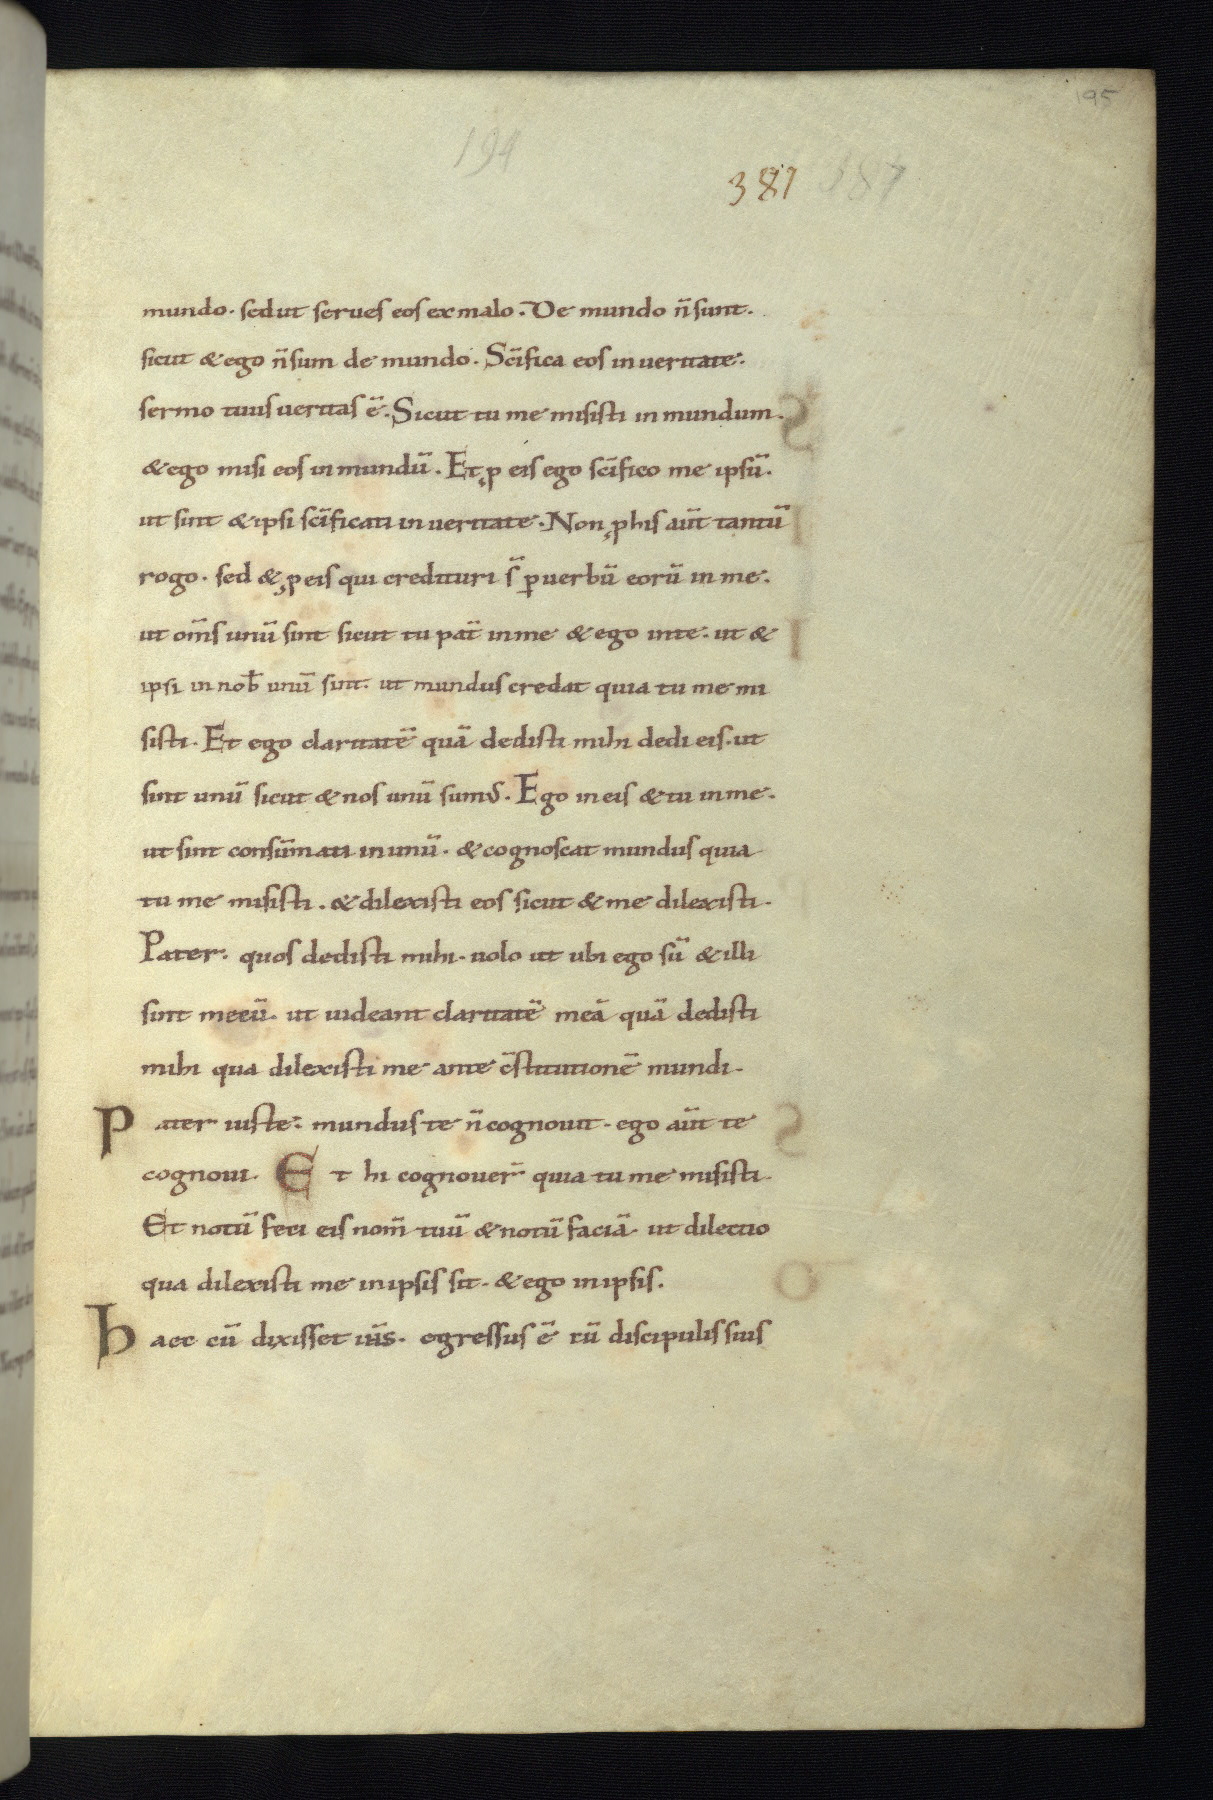 195
194
381 387
mundo. sed ut serues eos ex malo. De mundo n̄ sunt.
sicut & ego n̄ sum de mundo. Sc̄ifica eos in veritate.
sermo tuus ueritas ē. Sicut tu me misisti in mundum.
& ego misi eos in mundū. Et ꝓ eis ego sc̄ifico me ipsū.
ut sint & ipsi sc̄ificati in veritate. Non ꝓ his aūt tantū
rogo. sed & ꝓ eis qui credituri s̄ ꝑ uerbū eorū in me.
ut om̄s unū sint sicut tu pat̄ in me & ego in te. ut &
ipsi in nob̄ unū sint. ut mundus credat quia tu me mi
sisti. Et ego claritatē quā dedisti mihi dedi eis. ut
sint unū sicut & nos unū sumꝰ. Ego in eis & tu in me.
ut sint consūmati in unū. & cognoscat mundus quia
tu me misisti. & dilexisti eos sicut & me dilexisti.
Pater. quos dedisti mihi. uolo ut ubi ego sū & illi
sint mecū. ut uideant claritatē meā quā dedisti
mihi qua dilexisti me ante c̄stitutionē mundi.
Pater iuste. mundus te n̄ cognouit. ego aūt te
cognoui. Et hi cognouer̄ quia tu me misisti.
Et notū feci eis nom̄ tuū & notū faciā. ut dilectio
qua dilexisti me in ipsis sit. & ego in ipsis.
Haec cū dixisset ih̄s. egressus ē cū discipulis suis